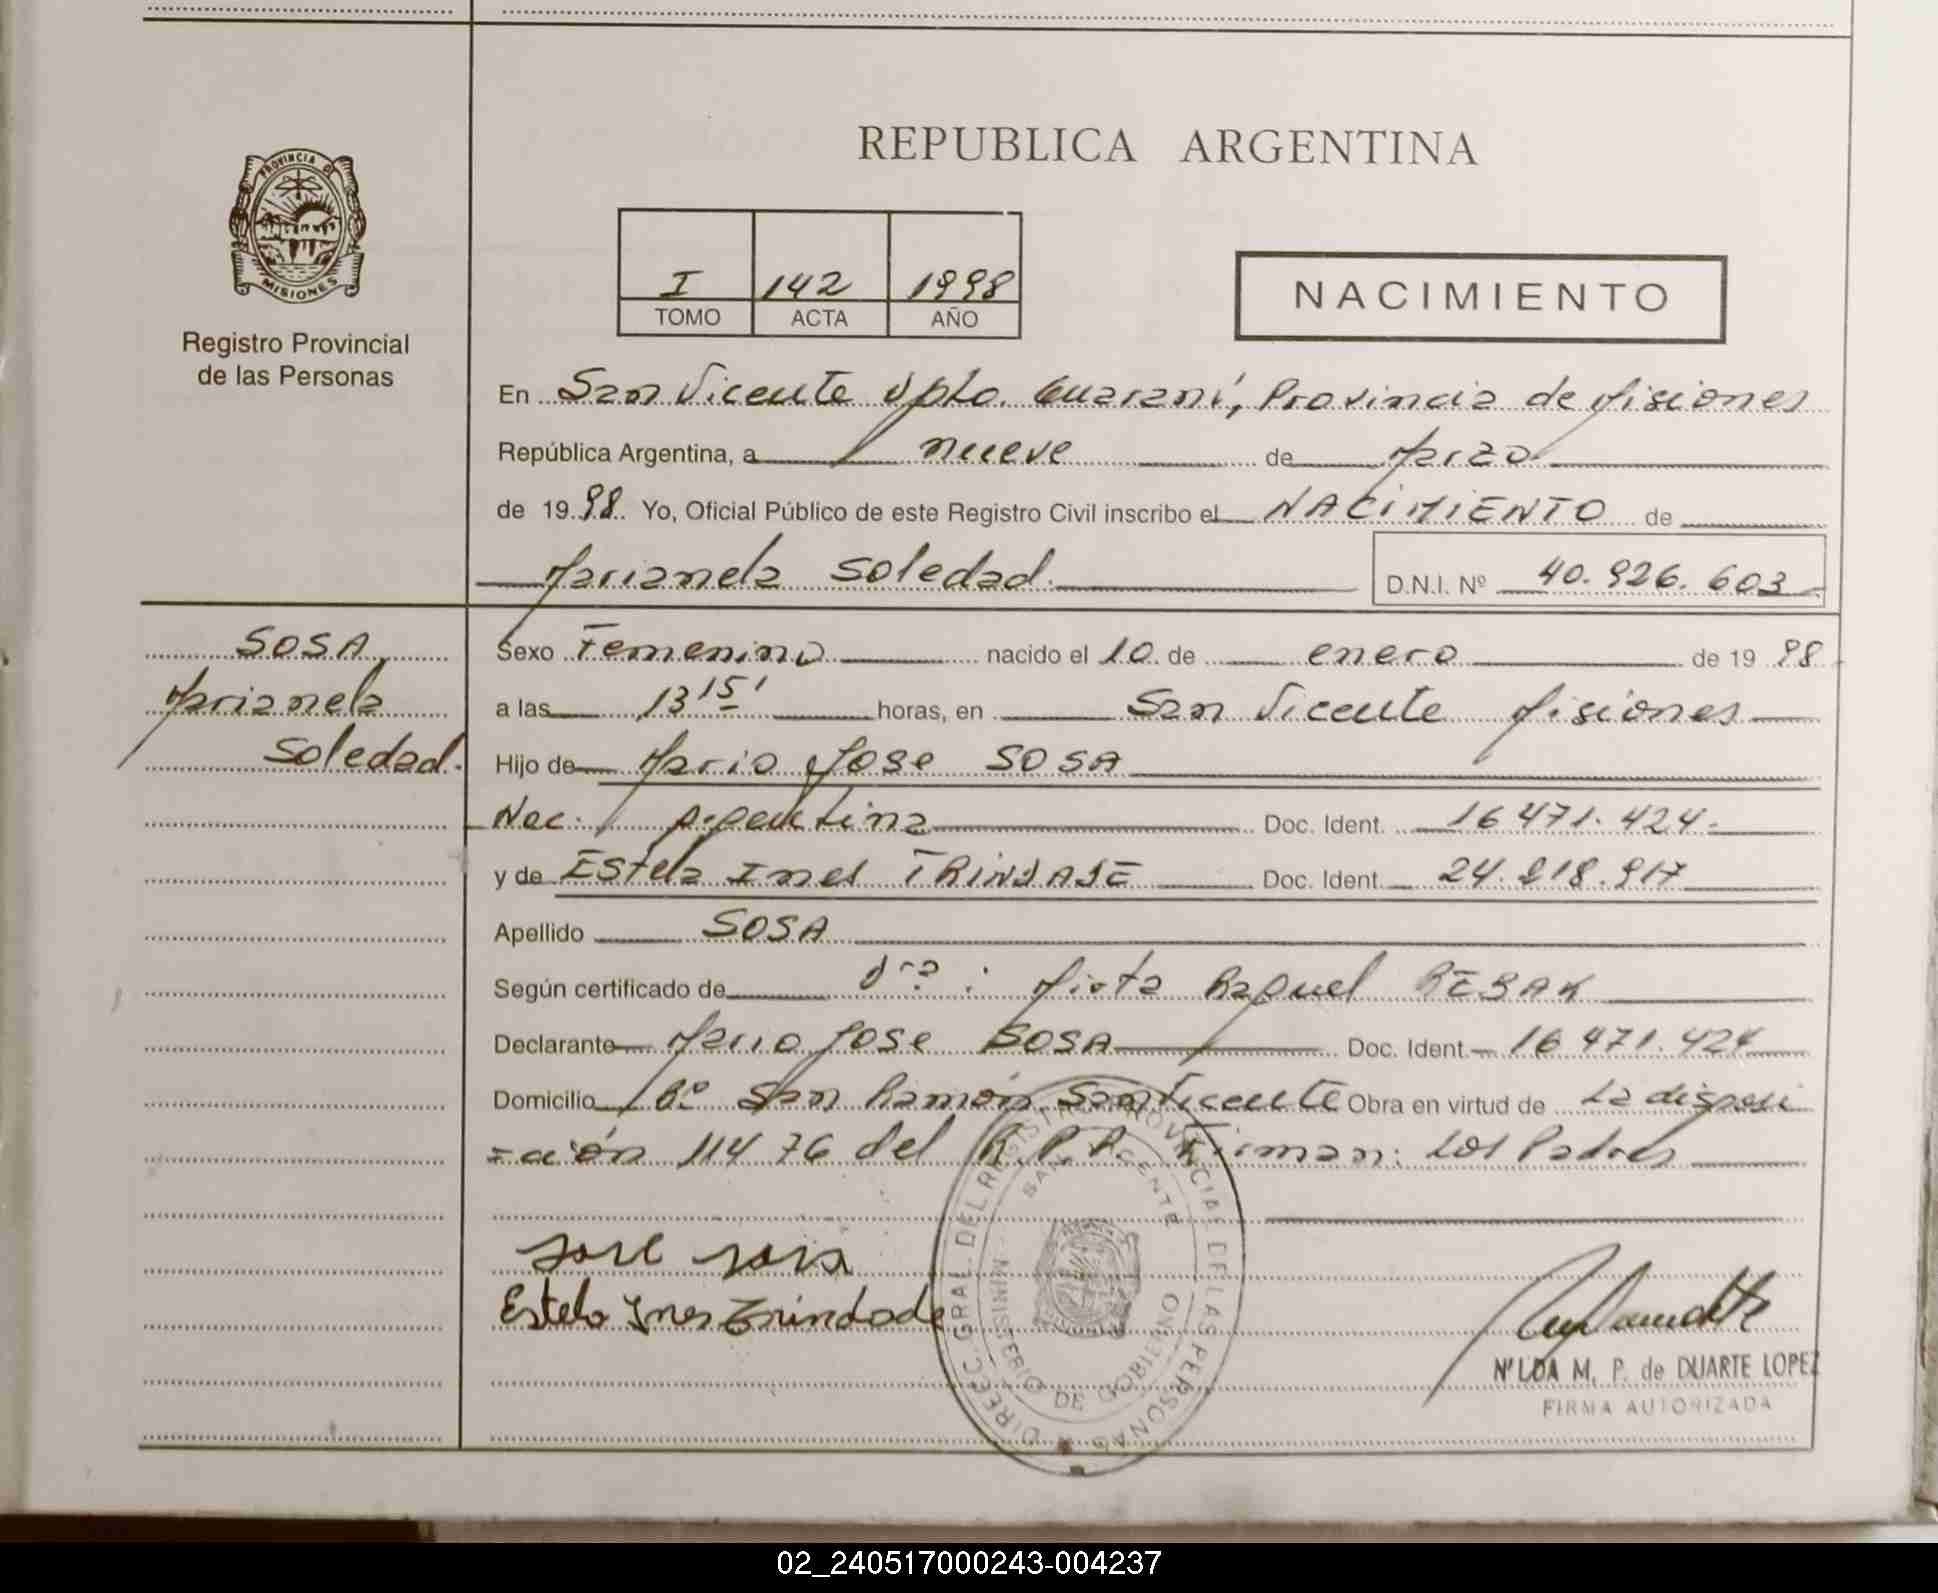 REPUBLICA ARGENTINA
PROVINCIA DE
MISIONES
Registro Provincial
de las Personas
I 142 1998
TOMO ACTA AÑO
NACIMIENTO
En San Vicente Dpto. Guaraní, Provincia de Misiones
República Argentina, a nueve de Marzo
de 1998 Yo, Oficial Público de este Registro Civil inscribo el NACIMIENTO de
Marianela Soledad. D.N.I. Nº 40.926.603
SOSA
Marianela
Soledad.
Sexo Femenino nacido el 10 de enero de 1998
a las 13 15' horas, en San Vicente Misiones
Hijo de Mario Jose SOSA
Nac. Argentina Doc. Ident. 16 471.424
y de Estela Ines TRINDADE Doc. Ident. 24.818.917
Apellido SOSA
Según certificado de Dra: Mirta Raquel
Declarante Mario Jose SOSA Doc. Ident. 16 471.424
Domicilio Bº San Ramón San Vicente Obra en virtud de La disposi
=ción 114 76 del R.P.P. Firman: Los Padres
DIREC. GRAL. DEL REGISTRO PROVINCIAL DE LAS PERSONAS
SAN VICENTE
MINISTERIO DE GOBIERNO
Jose Sosa
Estela Ynes Trindade
M. P. de DUARTE LOPEZ
FIRMA AUTORIZADA
02_240517000243-004237